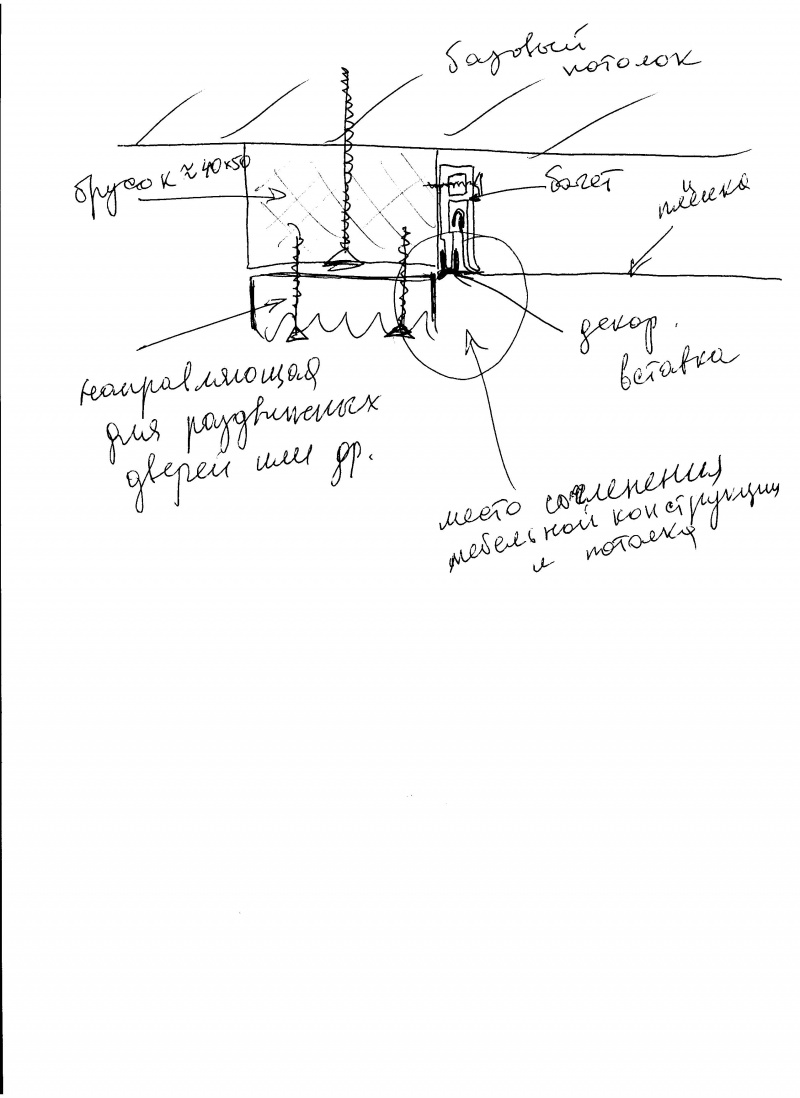 базовый
потолок
брусок ≈40×50
багет
плёнка
декор.
вставка
направляющая
для раздвижных
дверей или др.
место сочленения
мебельной конструкции
и потолка